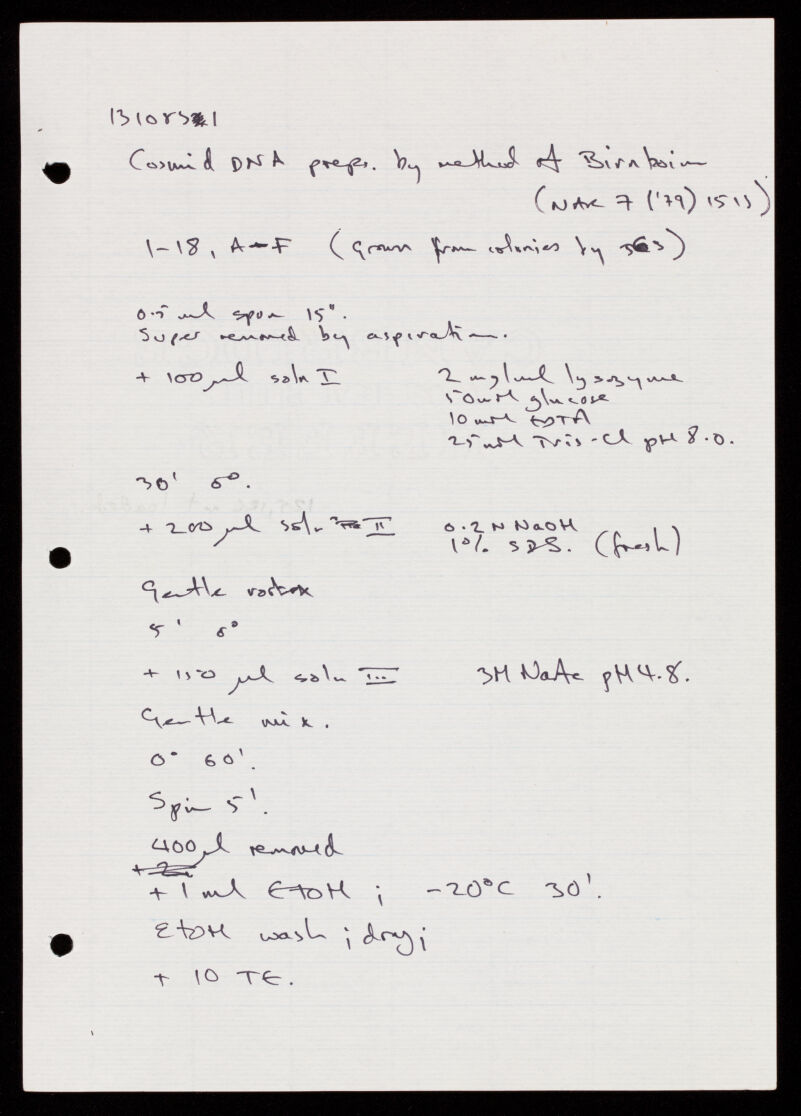 131083 1
Cosmid DNA preps. by method of Birnboim
(NAR 7 ('79) 1513)
1-18, A-F (Grown from colonies by JES)
0.5 ml spun 15".
Super removed by aspiration.
+ 100 µl soln I 2 mg/ml lysozyme
50mM glucose
10mM EDTA
25mM Tris-Cl pH 8.0.
30' 0°.
+ 200 µl soln II 0.2 N NaOH
1% SDS. (fresh)
Gentle vortex
5' 0°
+ 150 µl soln III 3M NaAc pH 4.8.
Gentle mix.
0° 60'.
Spin 5'.
400µl removed
+ 1 ml EtOH ; -20°C 30'.
EtOH wash ; dry ;
+ 10 TE.